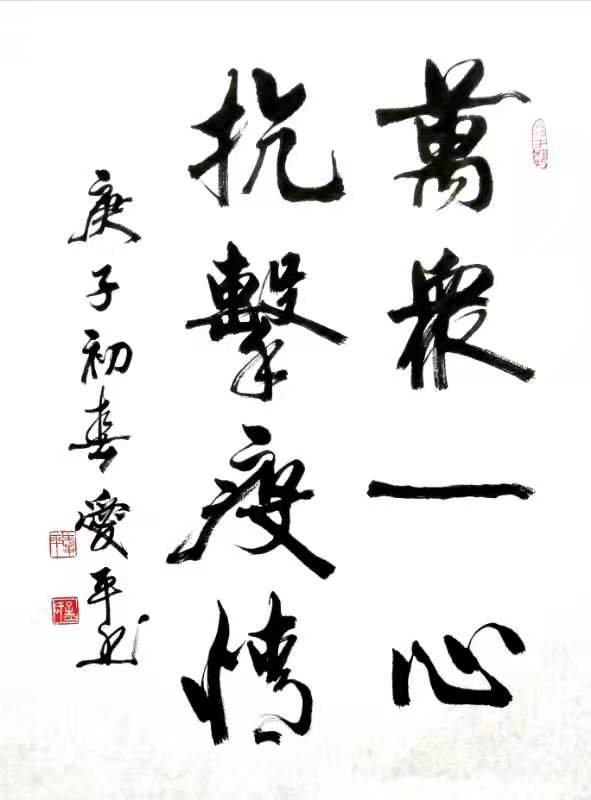 萬眾一心
抗擊疫情
庚子初春愛平书